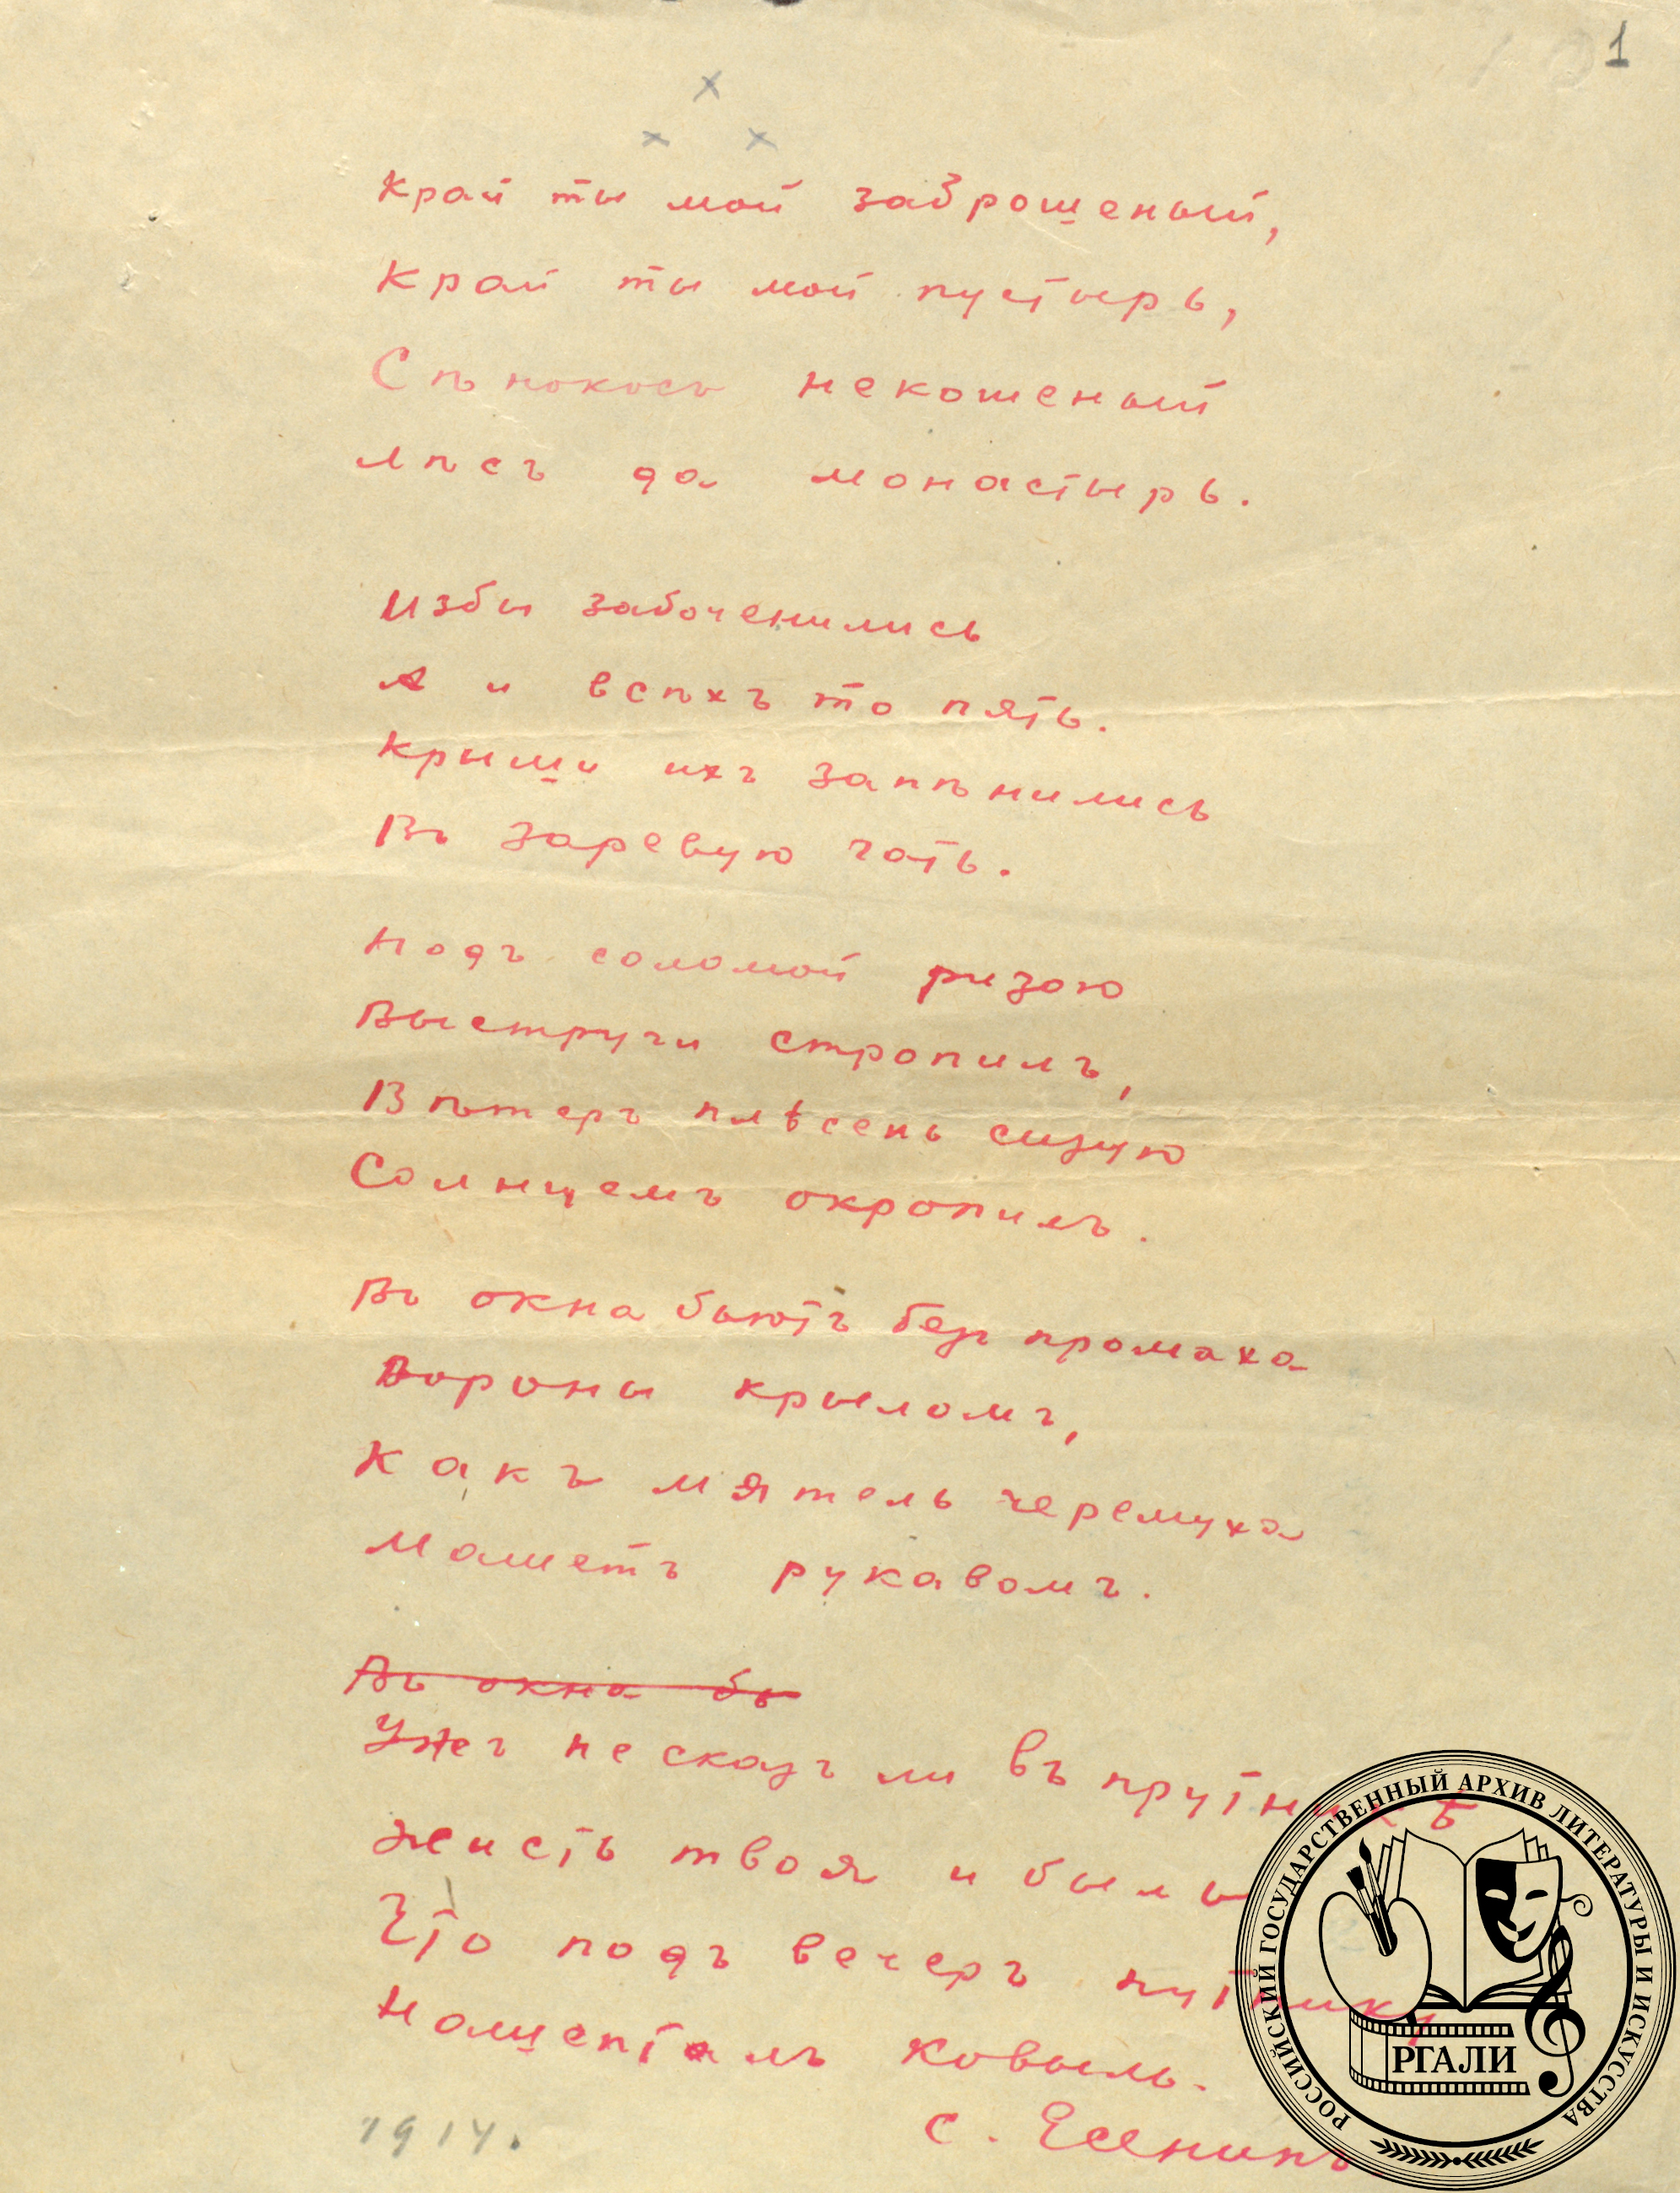 1
х
х х
Край ты мой заброшеный,
Край ты мой пустырь,
Сѣнокосъ некошеный
Лѣсъ да монастырь.
Избы забоченились
А и всѣхъ то пять.
Крыши ихъ запѣнились
Въ заревую гать.
Подъ соломой ризою
Выструги стропилъ,
Вѣтеръ плѣсень сизую
Солнцемъ окропилъ.
Въ окна бьютъ безъ промаха
Вороны крыломъ,
Какъ мятель черемуха
Машетъ рукавомъ.
Въ окна бь
Ужъ не сказъ ли въ прутникѣ
Жисть твоя и быль
Что подъ вечеръ путнику
Нашепталъ ковыль.
1914.
С. Есенинъ
РОССИЙСКИЙ ГОСУДАРСТВЕННЫЙ АРХИВ ЛИТЕРАТУРЫ И ИСКУССТВА
РГАЛИ